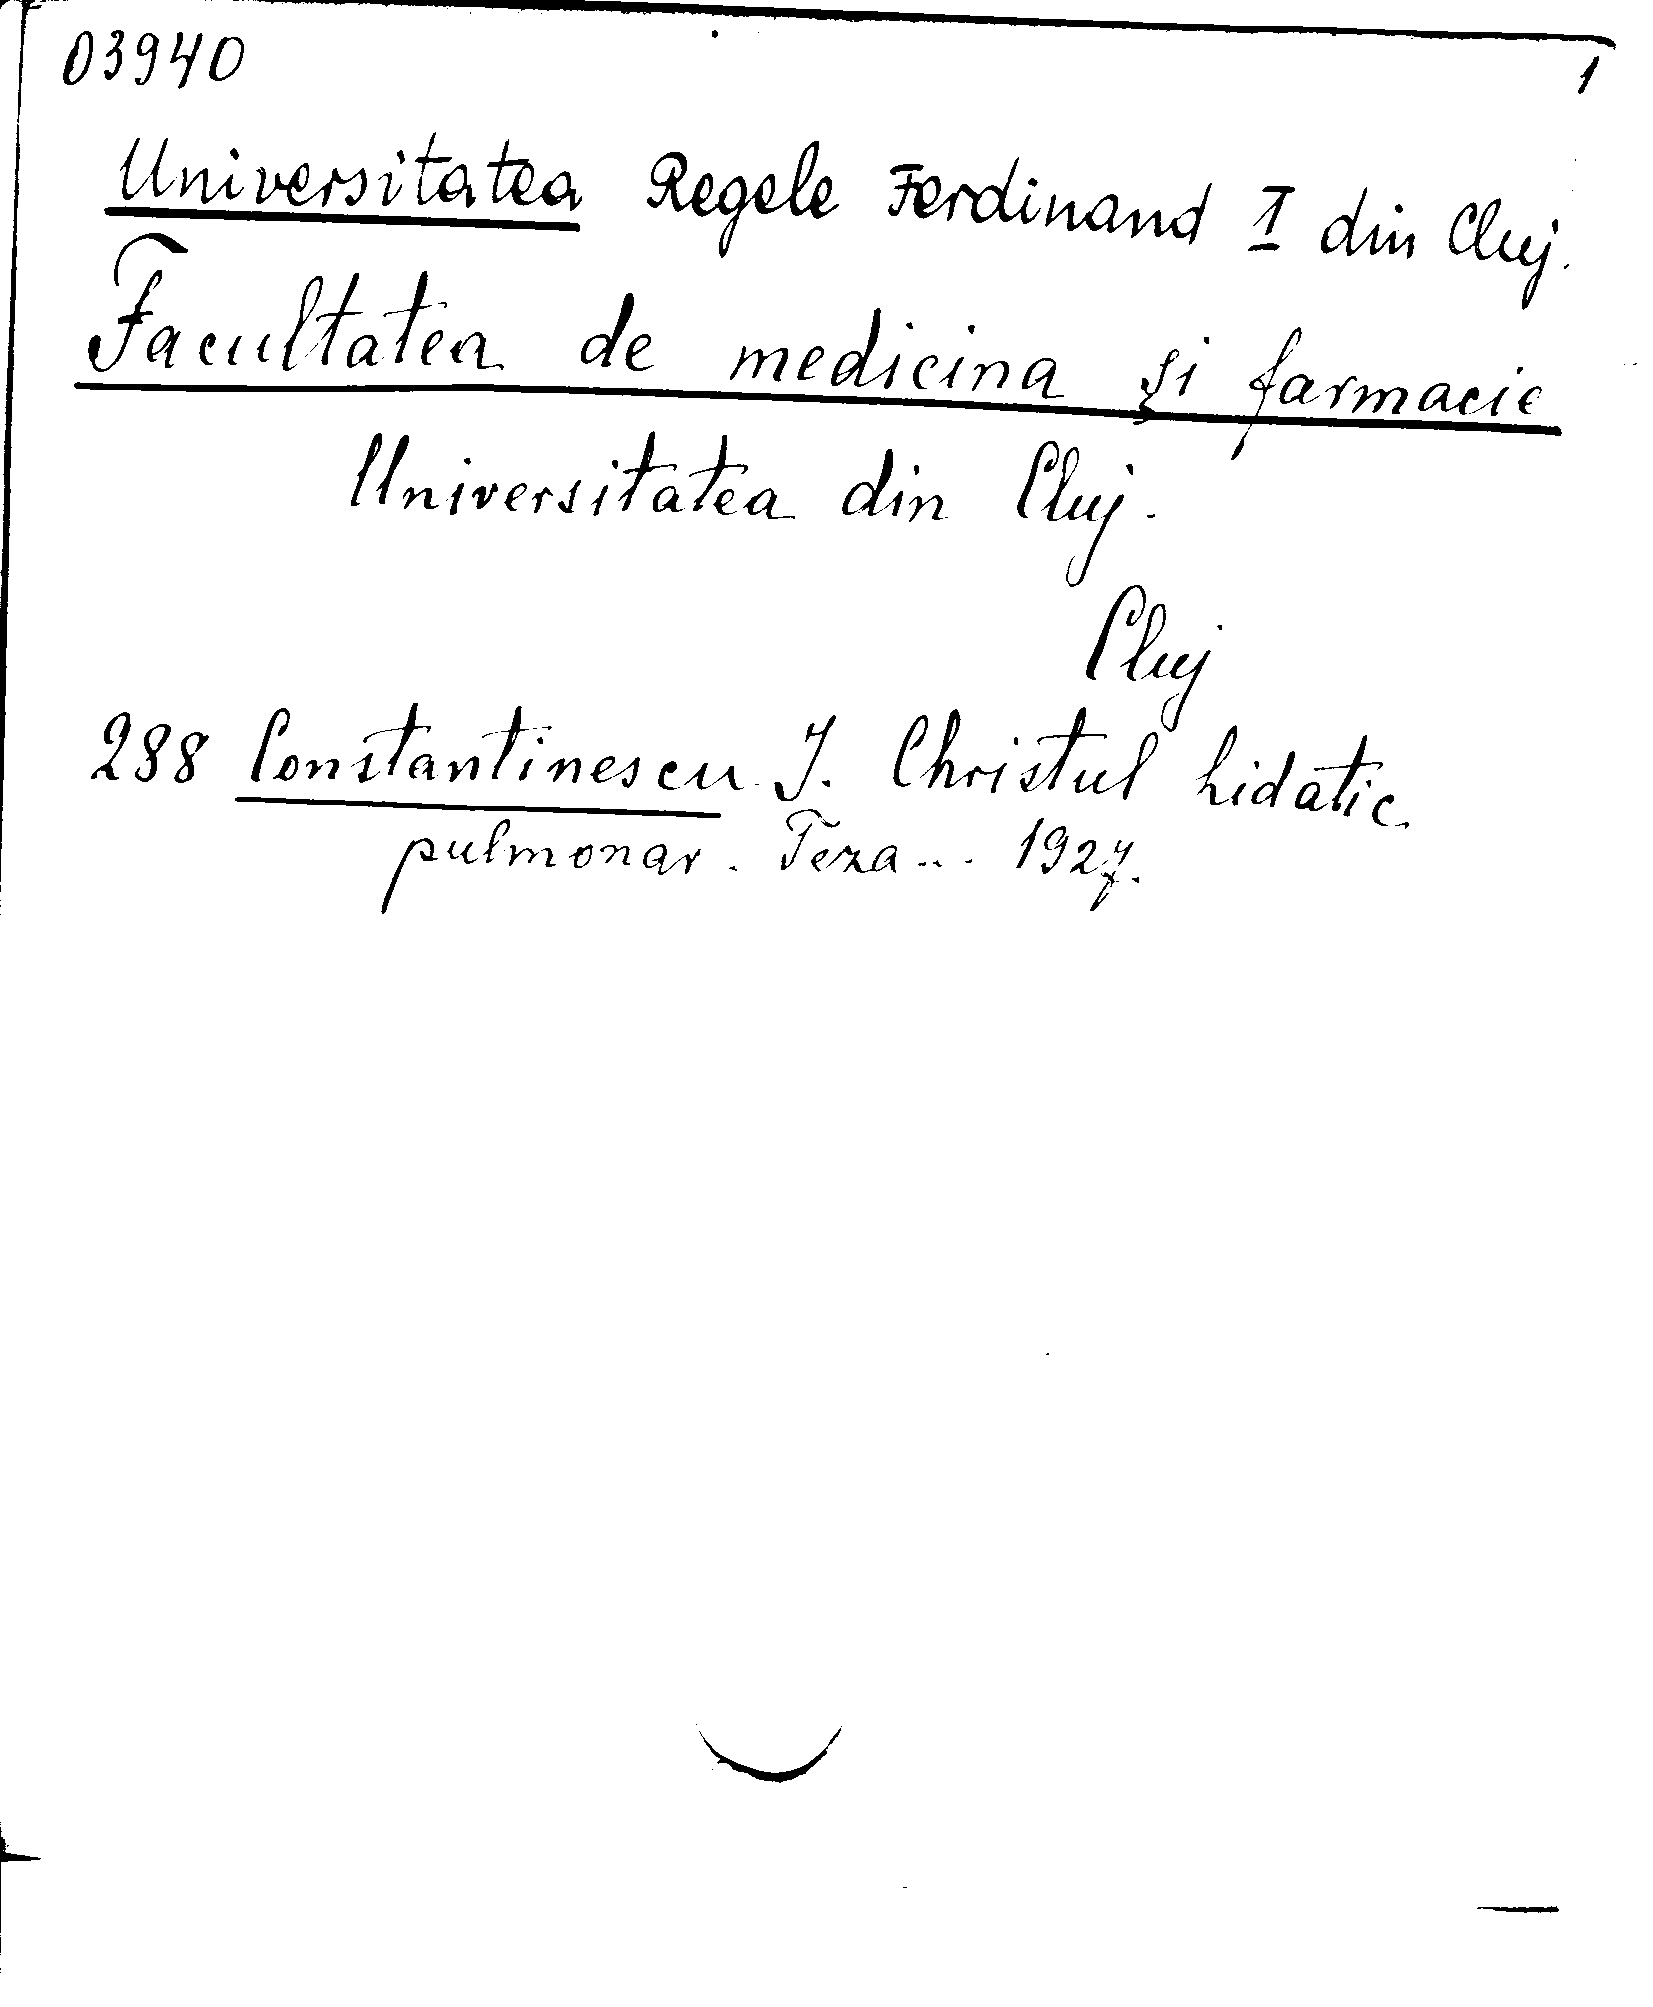 03940 1
Universitatea Regele Ferdinand I din Cluj.
Facultatea de medicina și farmacie
Universitatea din Cluj.
Cluj
288 Constantinescu J. Christul hidatic
pulmonar. Teza... 1927.